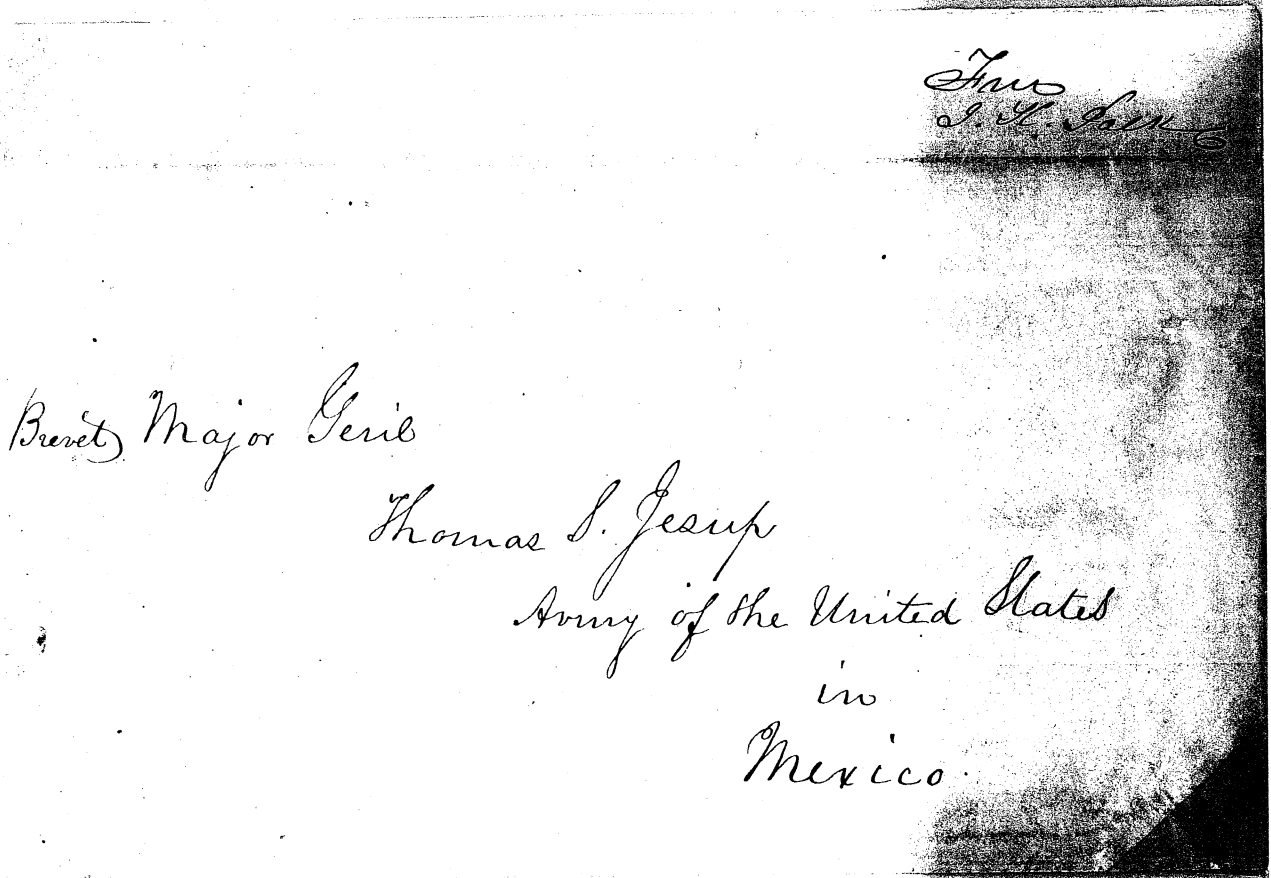 Free
J. K. Polk
Brevet Major Genl
Thomas S. Jesup
Army of the United States
in
Mexico.